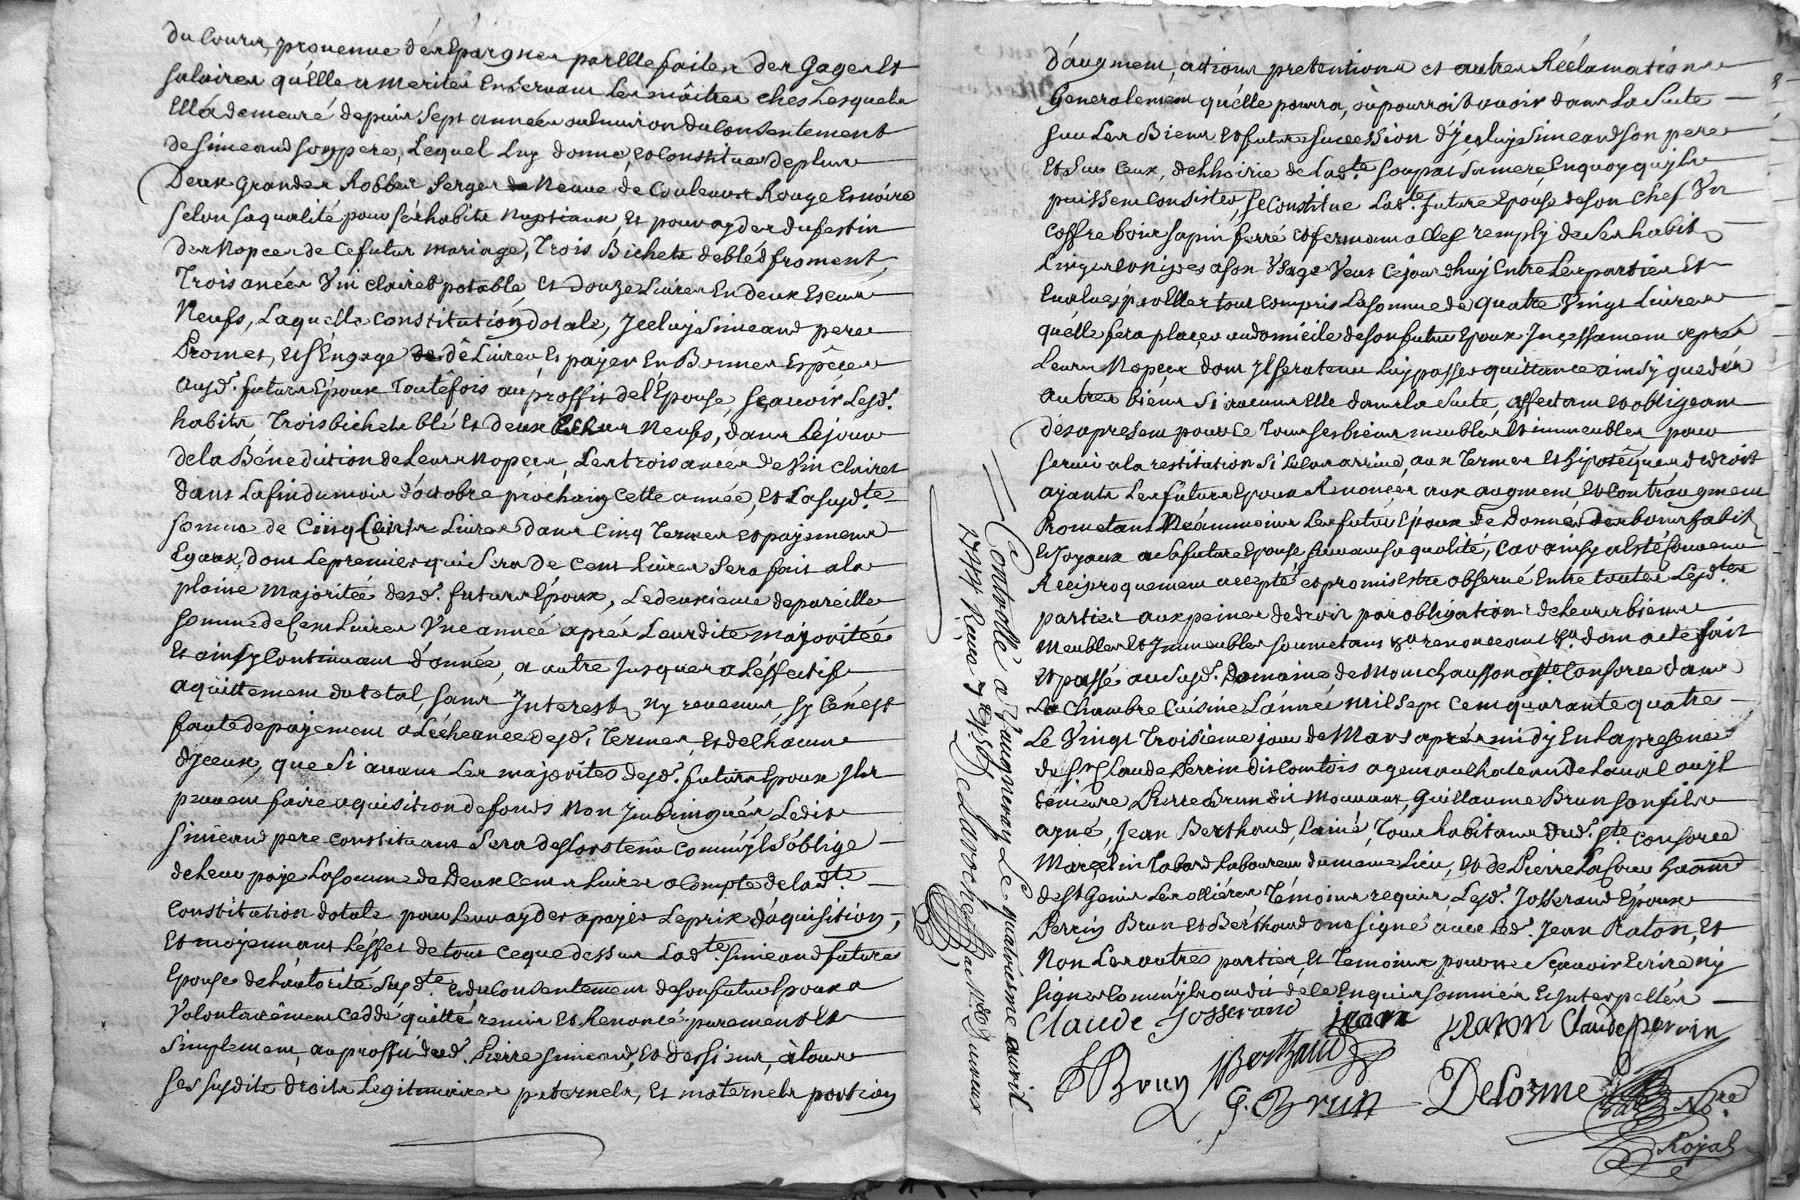 du Cours, provenue des Epargnes par Elle faites des Gages Et
salaires qu'Elle a merités En servant Les maitres ches Lesquels
Ella demeuré depuis sept années ou Environ du Consentement
de simeand son pere, Lequel Luy donne, et Constitue de plus
Deux Grandes Robbes serges de Neuve de Couleurs Rouge Et noire
selon sa qualité pour ses habits Nuptiaux, Et pour ayder du festin
des Nopces de Ce futur mariage, Trois Bichets de bléd froment,
Trois anées Vin clairet potable et douze Livres En deux Escus
Neufs, Laquelle Constitution dotale, Iceluy Simeand pere
Promet, et s'Engage de dé Livrer, Et payer En Bonnes Espéces
ausd. futurs Epoux Toutéfois au proffit de l'Epouse, sçavoir Lesd.
habits, Trois bichets blé Et deux Escus Neufs, dans Le jour
de la Bénediction de Leurs Nopces, Les trois anées de Vin clairet
dans La fin du mois d'octobre prochain Cette année, Et La susd.te
somme de Cinq Cents Livres dans Cinq Termes et payements
Egaux, dont Le premier qui sera de Cent Livres sera fait a la
plaine majoritée desd. futurs Epoux, Le deuxieme de pareille
somme de Cent Livres Une année aprés Leurdite majoritée
Et ainsy Continuant d'année, a autre jusques a L'éffectif
aquittement du total, sans Interest, Ny revenus, sy Cen'est
faute de payement a L'écheance desd. Termes, Et de Chacun
d'Iceux, que si avant Les majorités desd. futurs Epoux Ils
peuvent faire aquisition de fonds Non Imbringués, Ledit
siméand pere Constituant sera deslors tenû Comm'il s'oblige
de Leur payé La somme de Deux Cents Livres a Compte de lad.te
Constitution dotale pour Leur ayder a payer Le prix d'aquisition,
Et moyennant L'éffet de tout Ce que dessus Lad.te simeand future
Epouse de L'autorité susd.te Et du Consentement de son futur Epoux a
Volontairement Ceddé, quitté remis Et Renoncé purement Et
simplement, au proffit dud. Pierre simeand, Et des siens, à tous
ses susdits droits Legitimaires paternels, Et maternels portion
d'augment, actions pretentions et autres Réclamations
Generalement qu'elle pourra, où pourroit avoir dans La suite
sur Les Biens et future succession d'Iceluy simeand son pere
Et sur Ceux, de L'hoirie de Lad.te soupat sa mere En quoy qu'ils
puissent Consister, se Constitue Lad.te future Epouse de son Chef Un
Coffre bois sapin ferré et fermant a Clef remply de ses habits
Linges et Nipes a son Usage Veus Ce jourdhuy Entre Les parties Et
Evalués par Elles tout Compris La somme de quatre Vingt Livres
qu'elle fera placer au domicile de son futur Epoux Incessament aprés
Leurs Nopces dont Il sera tenu Luy passer quittance ainsy que des
autres biens si aucuns Elle dans la suite, affectant et obligeant
dés apresent pour Ce Tous ses biens meubles Et immeubles pour
servir a la restitution si Le Cas arrive, aux Termes Et hipotéques de droit
ayants Les futurs Epoux Renoncer aux augment Et Contraugment
Prometant Néammoins Les futur Epoux de donner des bons habits
Et Joyaux a La future Epouse suivant sa qualité, Car ainsy a Esté Convenu
Réciproquement accepté et promis Estre observé Entre toutes Lesd.tes
parties aux peines de droit par obligation de Leurs biens
meubles Et Immeubles soumetant &a renonceant &a dont acte fait
Et passé au susd. Domaine de Montchausson, ste Consorce dans
La Chambre Cuisine L'année mil sept Cent quarante quatre
Le Vingt Troisieme jour de Mars aprés midy En la presence
du sr. Claude Perrin dit Comtois agent au chateau de Laval au dt
Pierre Brun dit Mouvaux, Guillaume Brun son fils
ayné, Jean Berthaud, Lainé, Tous habitans dud. Ste. Consorce
Marcelin Tabard Laboureur du meme Lieu, Et de Pierre
de St Genis Les ollieres, Témoins requis Lesd. Josserand Epoux
Perrin Brun et Berthaud ont signé avec Led. Jean Raton, Et
Non Les autres parties, Et Temoins pour ne sçavoir Ecrire ny
signer Comm'ils ont dit de Ce Enquis sommés Et Interpellés
Claude Josserand Jean Raton Claude perrin
Brun JBerthaud
G. Brun Delorme No.re
Royal
Controllé a Vaugneray Le quatriesme avril
1744 Recu